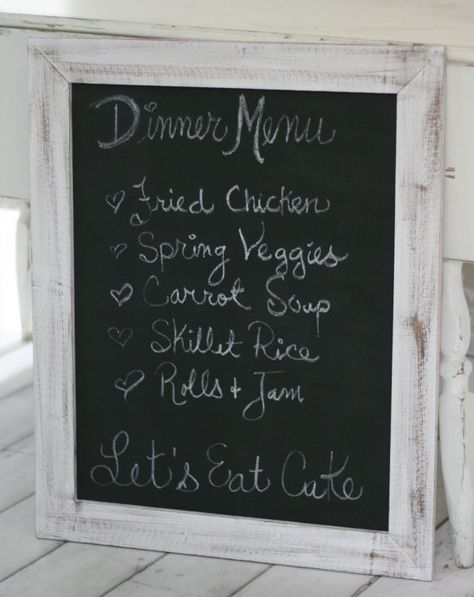 Dinner Menu
♡ Fried Chicken
♡ Spring Veggies
♡ Carrot Soup
♡ Skillet Rice
♡ Rolls + Jam
Let's Eat Cake